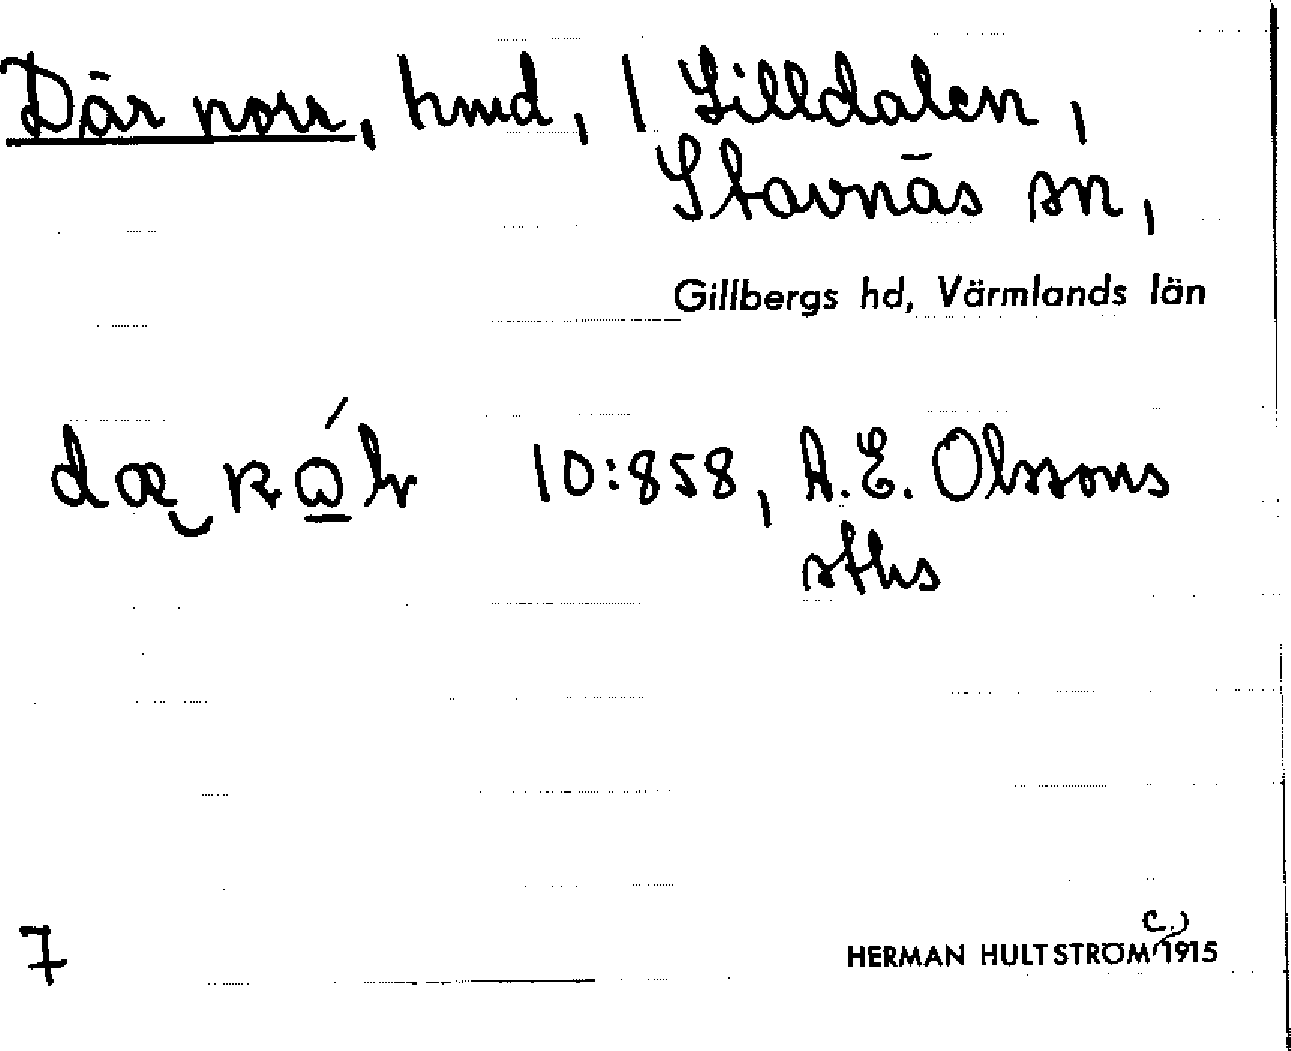 Där norr, hmd, / Lilldalen,
Stavnäs sn,
Gillbergs hd, Värmlands län
10:858, A. E. Olssons
sths
7
c.)
HERMAN HULTSTRÖM 1915